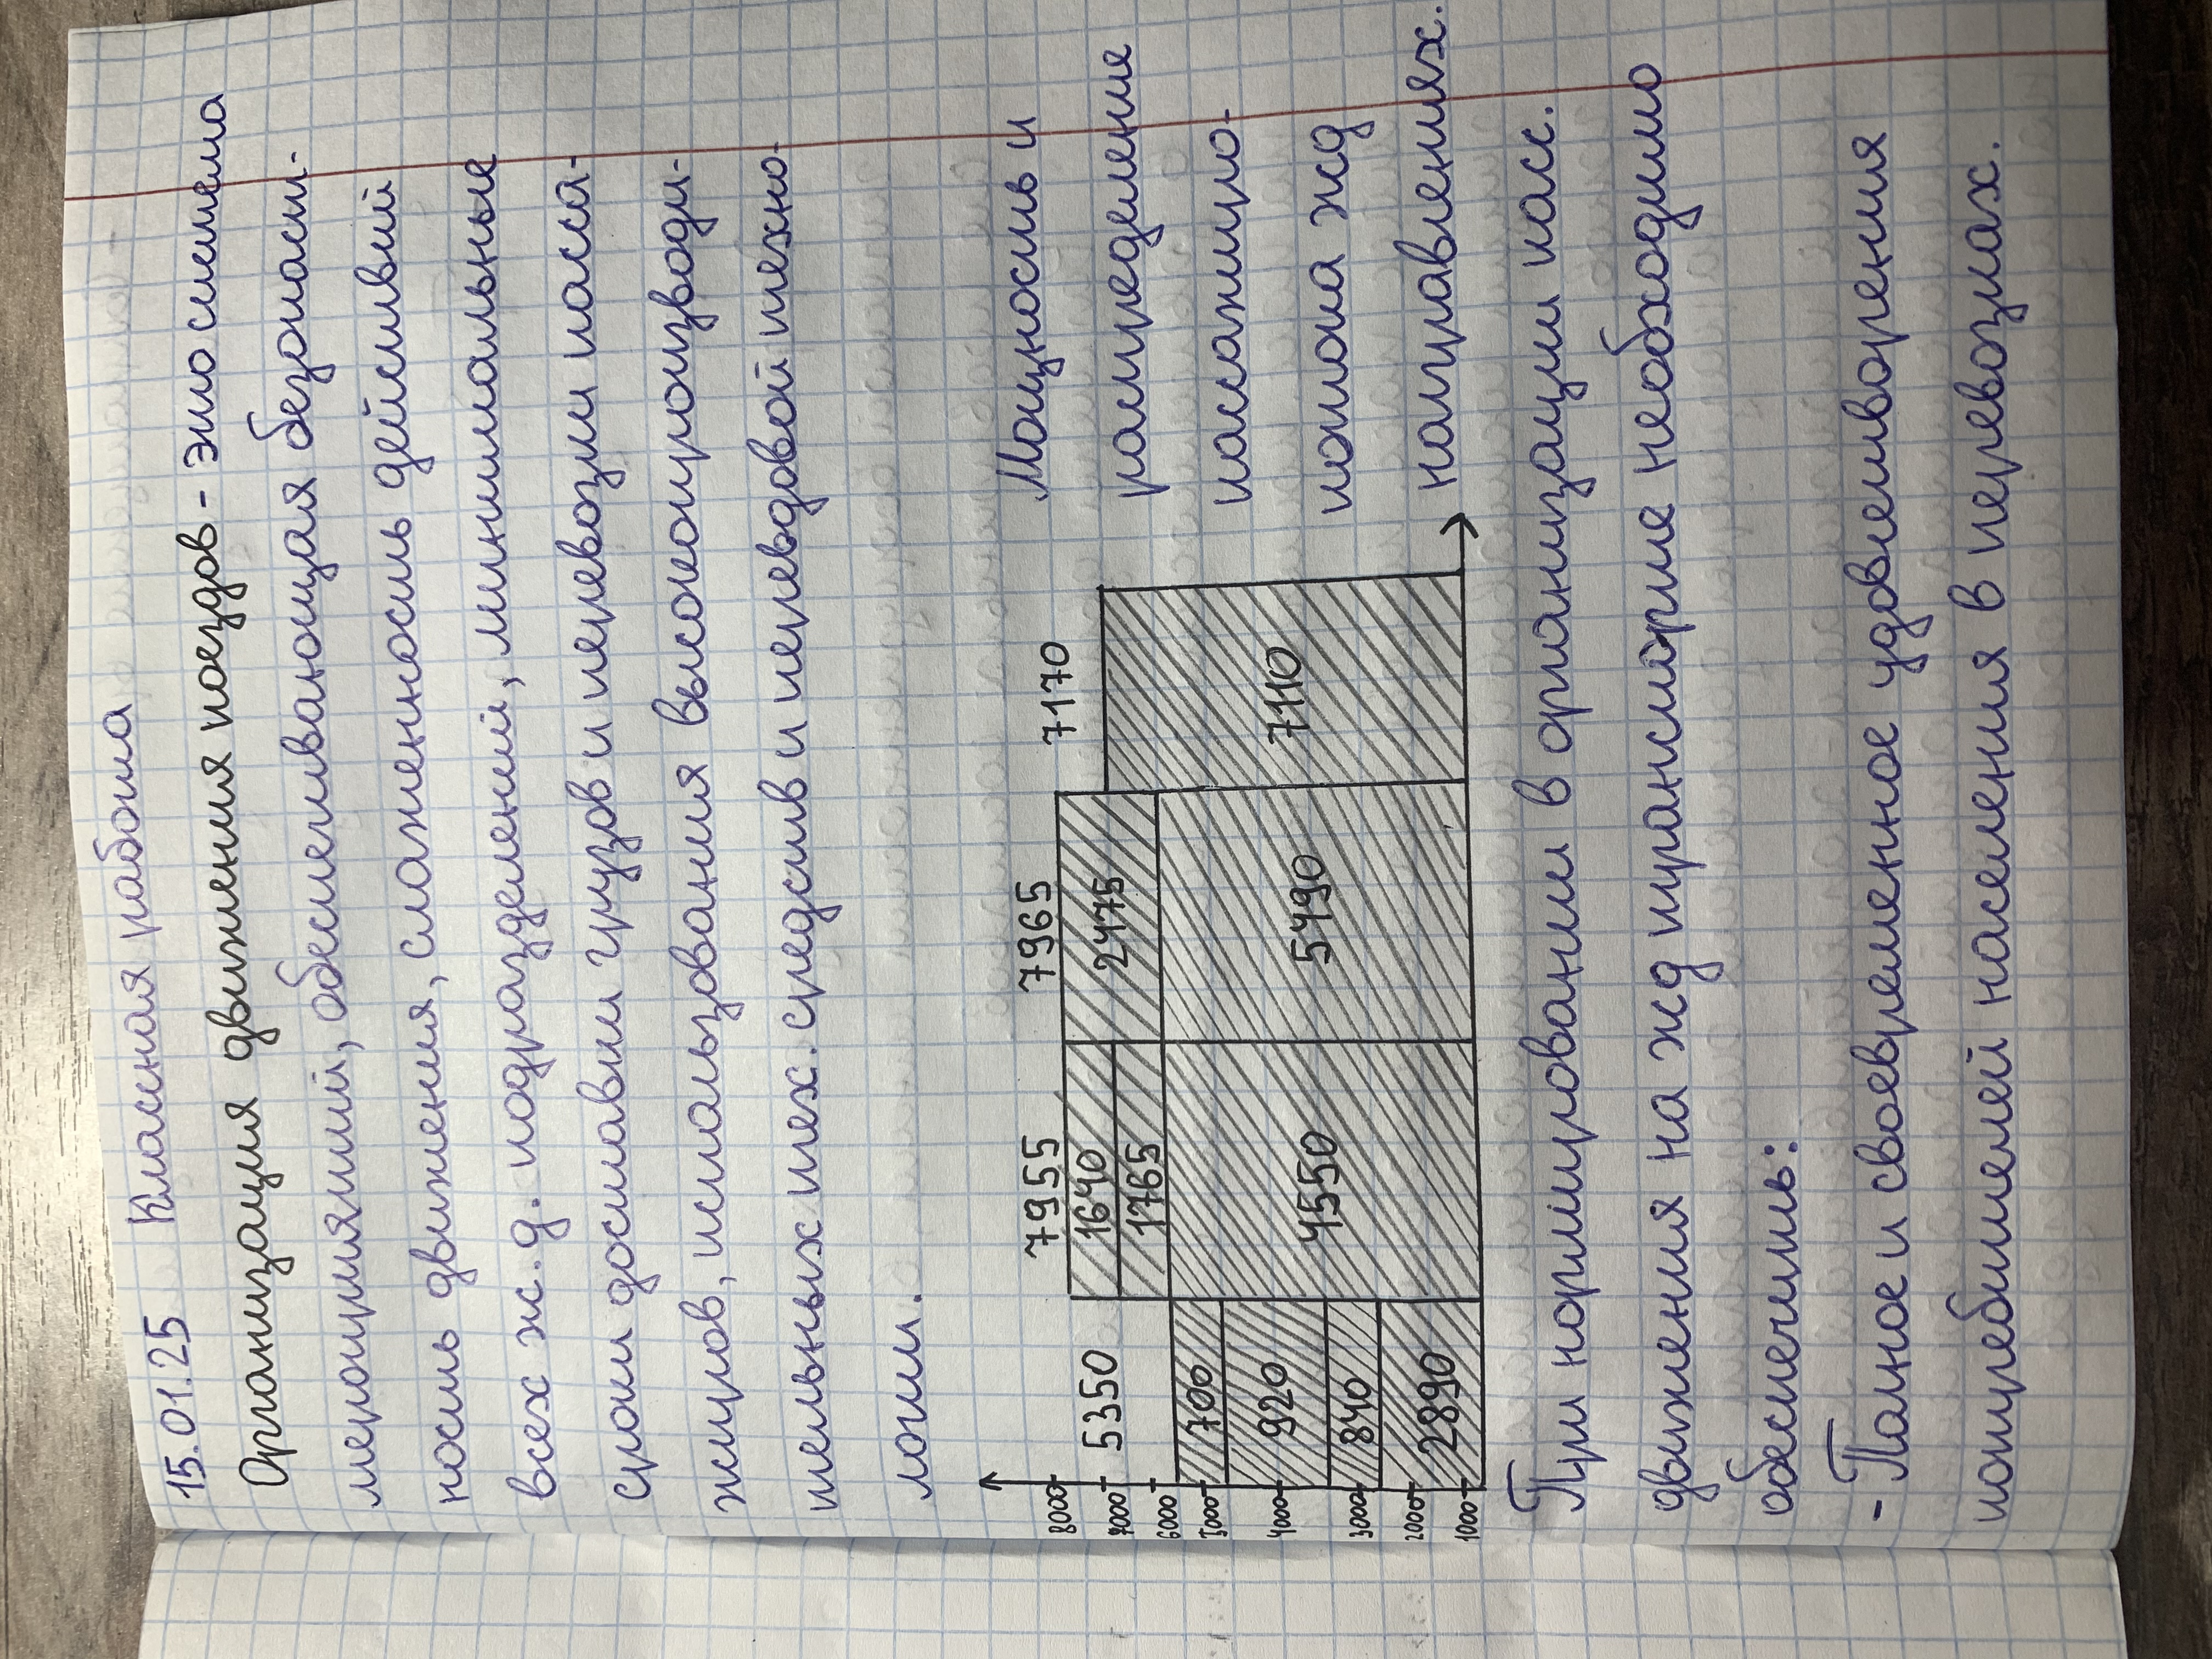 15.01.25 Класная работа
Организация движения поездов - это система
мероприятий, обеспечивающая безопасн-
ность движения, слаженность действий
всех ж.д. подразделений, минимальные
сроки доставки грузов и перевозки пасса-
жиров, использования высокопроизводи-
тельных тех. средств и передовой техно-
логии.
8000
7000
6000
5000
4000
3000
2000
1000
5350 7955 7965 7170
700
920
840
2890
1640
1765
4550
2475
5490
7110
Мощность и
распределение
пассажиро-
потока жд
направлениях.
При нормировании в организации пасс.
движения на жд транспорте необходимо
обеспечить:
- Полное и своевременное удовлетворения
потребителей населения в перевозках.